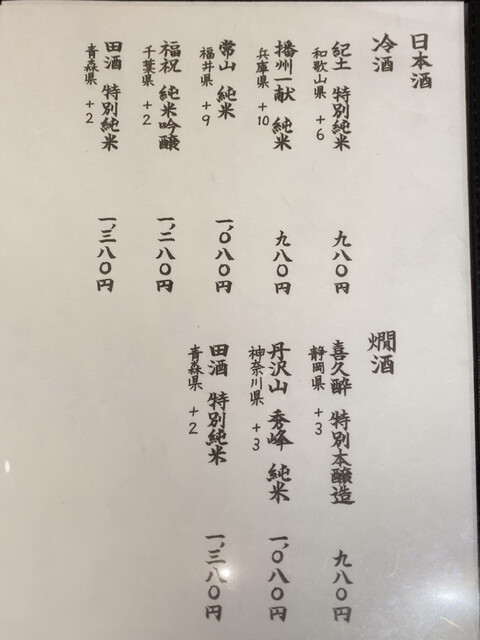 日本酒
冷酒
紀土 特別純米 九八〇円
和歌山県 +6
播州一献 純米 九八〇円
兵庫県 +10
常山 純米 一、〇八〇円
福井県 +9
福祝 純米吟醸 一、二八〇円
千葉県 +2
田酒 特別純米 一、三八〇円
青森県 +2
燗酒
喜久酔 特別本醸造 九八〇円
静岡県 +3
丹沢山 秀峰 純米 一、〇八〇円
神奈川県 +3
田酒 特別純米 一、三八〇円
青森県 +2